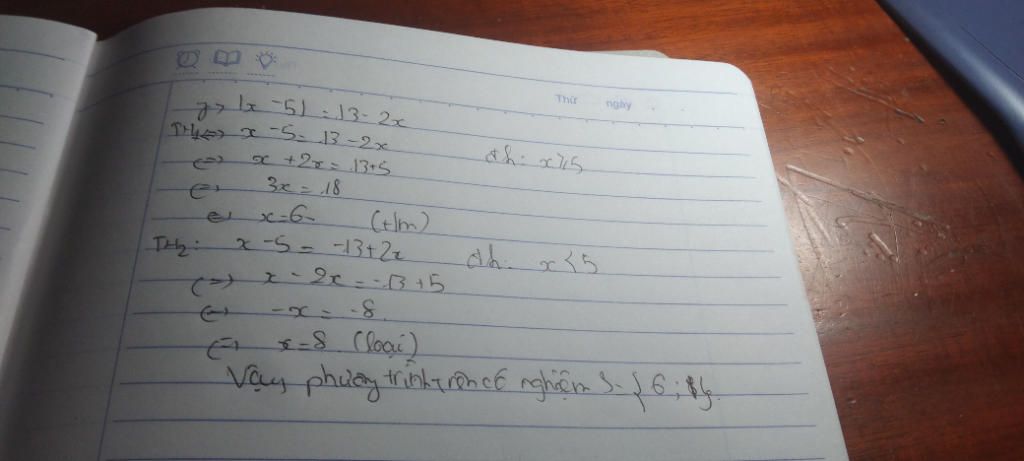 Thứ ngày
g, |x - 5| = 13 - 2x
TH1 <=> x - 5 = 13 - 2x đk: x ≥ 5
<=> x + 2x = 13 + 5
<=> 3x = 18
<=> x = 6 (t/m)
TH2: x - 5 = -13 + 2x đk: x < 5
<=> x - 2x = -13 + 5
<=> -x = -8
<=> x = 8 (loại)
Vậy phương trình trên có nghiệm S = { 6 ; }